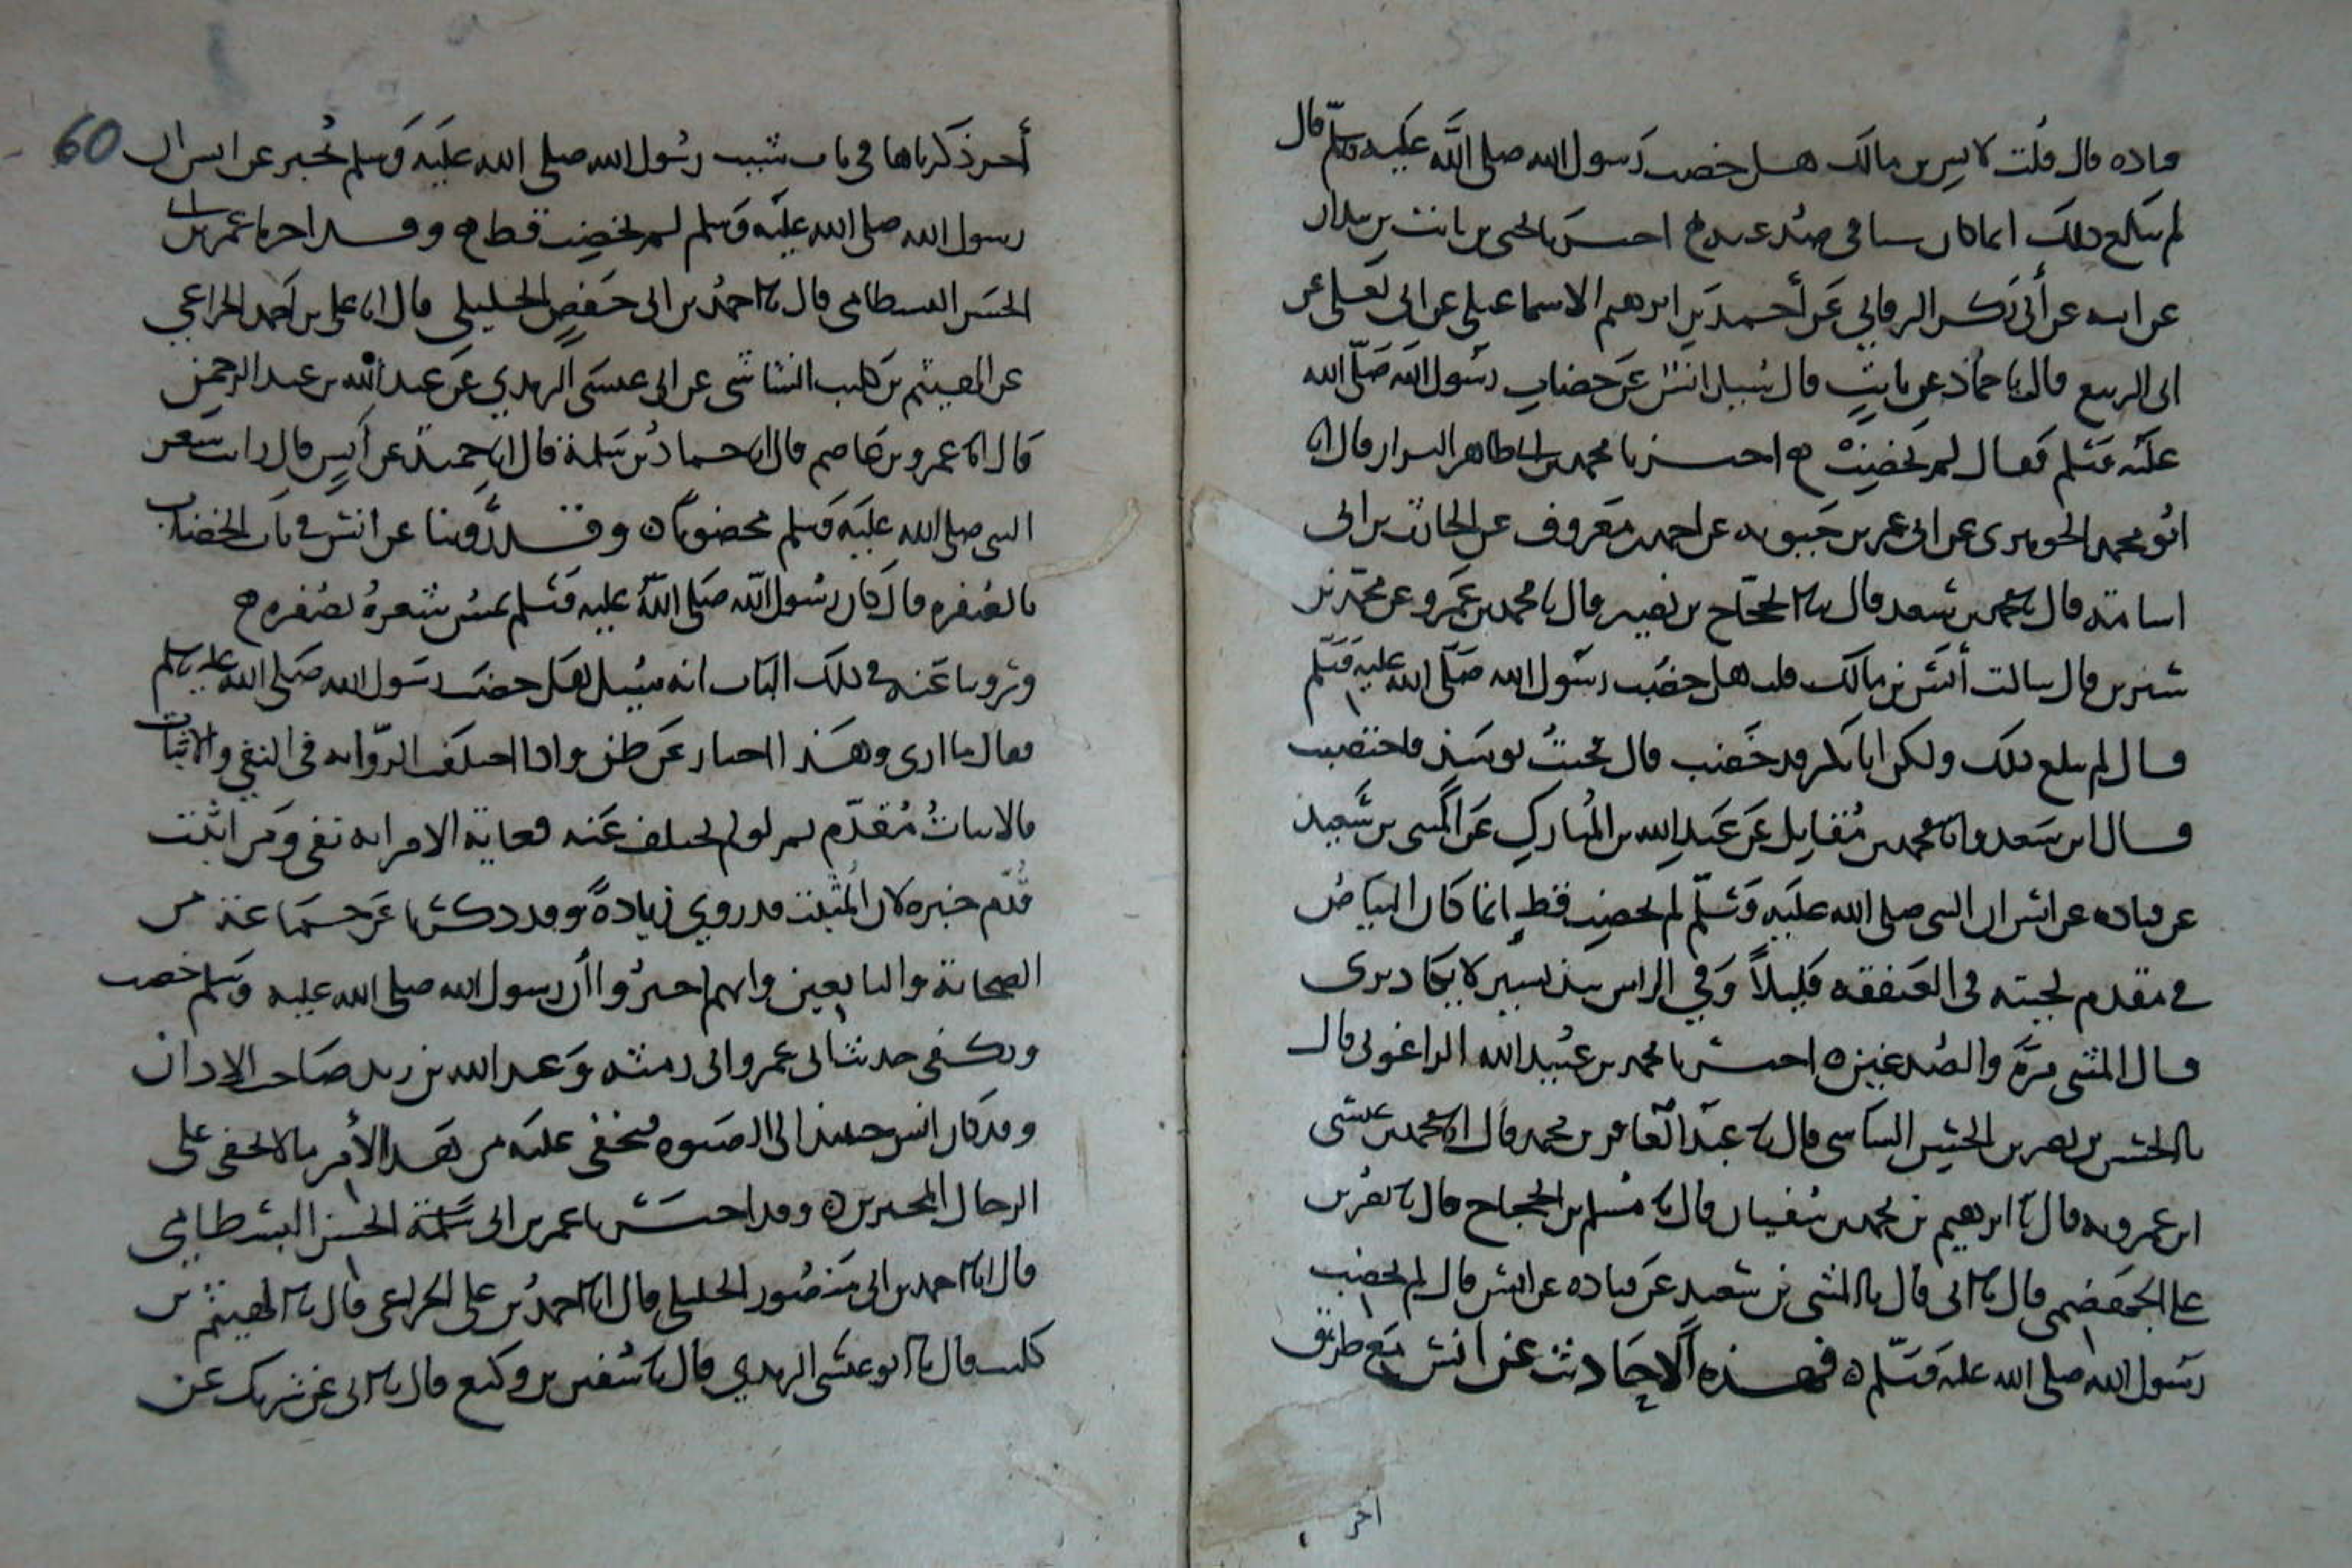 قتاده قال قلت لانس بن مالك هل خضب رسول الله صلى الله عليه وسلم قال
لم يبلغ ذلك انما كان شيبا في صدغيه ح اخبرنا يحيى بن ثابت بن بندار
عن ابيه عن أبي بكر البرقاني عن أحمد بن ابرهيم الاسماعيلي عن ابي يعلى عن
ابي الربيع قال نا حماد عن ثابت قال سئل انس عن خضاب رسول الله صلى الله
عليه وسلم فقال لم يخضب ح اخبرنا محمد بن ابي طاهر البزار قال انا
ابو محمد الجوهري عن ابي عمر بن حيويه عن احمد بن معروف عن الحارث بن ابي
اسامة قال نا محمد بن سعد قال نا الحجاج بن نصير قال نا محمد بن عمرو عن محمد بن
سيرين قال سالت أنس بن مالك قلت هل خضب رسول الله صلى الله عليه وسلم
قال لم يبلغ ذلك ولكن ابا بكر قد خضب قال فجئت يومئذ فاختضبت
قال ابن سعد وانا محمد بن مقاتل عن عبد الله بن المبارك عن المثنى بن سعيد
عن قتاده عن انس ان النبي صلى الله عليه وسلم لم يخضب قط إنما كان البياض
في مقدم لحيته في العنفقه قليلاً وفي الراس نبذ يسير لا يكاد يرى
قال المثنى مرة والصدغين ه اخبرنا محمد بن عبيد الله الزاغوني قال
نا نصر بن الحسن الشاشي قال نا عبد الغافر بن محمد قال انا محمد بن عيسى
ابن عمرويه قال نا ابرهيم بن محمد بن سفيان قال نا مسلم بن الحجاج قال نا نصر بن
علي الجهضمي قال نا ابي قال نا المثنى بن سعيد عن قتاده عن انس قال لم يخضب
رسول الله صلى الله عليه وسلم ه فهذه الاحاديث عن انس مع طريق
اخر
أخر ذكرناها في باب شيب رسول الله صلى الله عليه وسلم تخبر عن انس ان
رسول الله صلى الله عليه وسلم لم يخضب قط ح وقد اخبرنا عمر بن ابي
الحسن البسطامي قال نا احمد بن ابي حفص الخليلي قال انا علي بن أحمد الخزاعي
عن الهيثم بن كليب الشاشي عن ابي عيسى الترمذي عن عبد الله بن عبد الرحمن
قال انا عمرو بن عاصم قال انا حماد بن سلمة قال انا حميد عن أنس قال رايت شعر
النبي صلى الله عليه وسلم مخضوبا ه وقد روينا عن انس في باب الخضاب
بالصفره قال كان رسول الله صلى الله عليه وسلم يمس شعره بصفره ح
وروينا عنه في ذلك الباب انه سئل هل خضب رسول الله صلى الله عليه وسلم
فقال ما ارى وهذا اخبار عن ظن واذا اختلف الرواية في النفي والاثبات
فالاثبات مقدم ثم لو لم يختلف عنه فغاية الامر انه نفى ومن اثبت
قدم خبره لان المثبت قد روي زيادة وقد ذكرنا عن جماعة من
الصحابة والتابعين وانهم اخبروا أن رسول الله صلى الله عليه وسلم خضب
ويكفي حديث ابي عمرو ابي رمثه وعبد الله بن زيد صاحب الاذان
وقد كان انس حينئذ الى الصبوه فيخفى عليه من هذا الأمر ما لا يخفى على
الرجال المخبرين ه وقد اخبرنا عمر بن ابي الحسن البسطامي
قال انا احمد بن ابي منصور الخليلي قال انا احمد بن علي الخزاعي قال نا الهيثم بن
كليب قال نا ابو عيسى الترمذي قال نا سفين بن وكيع قال نا ابي عن شريك عن
60